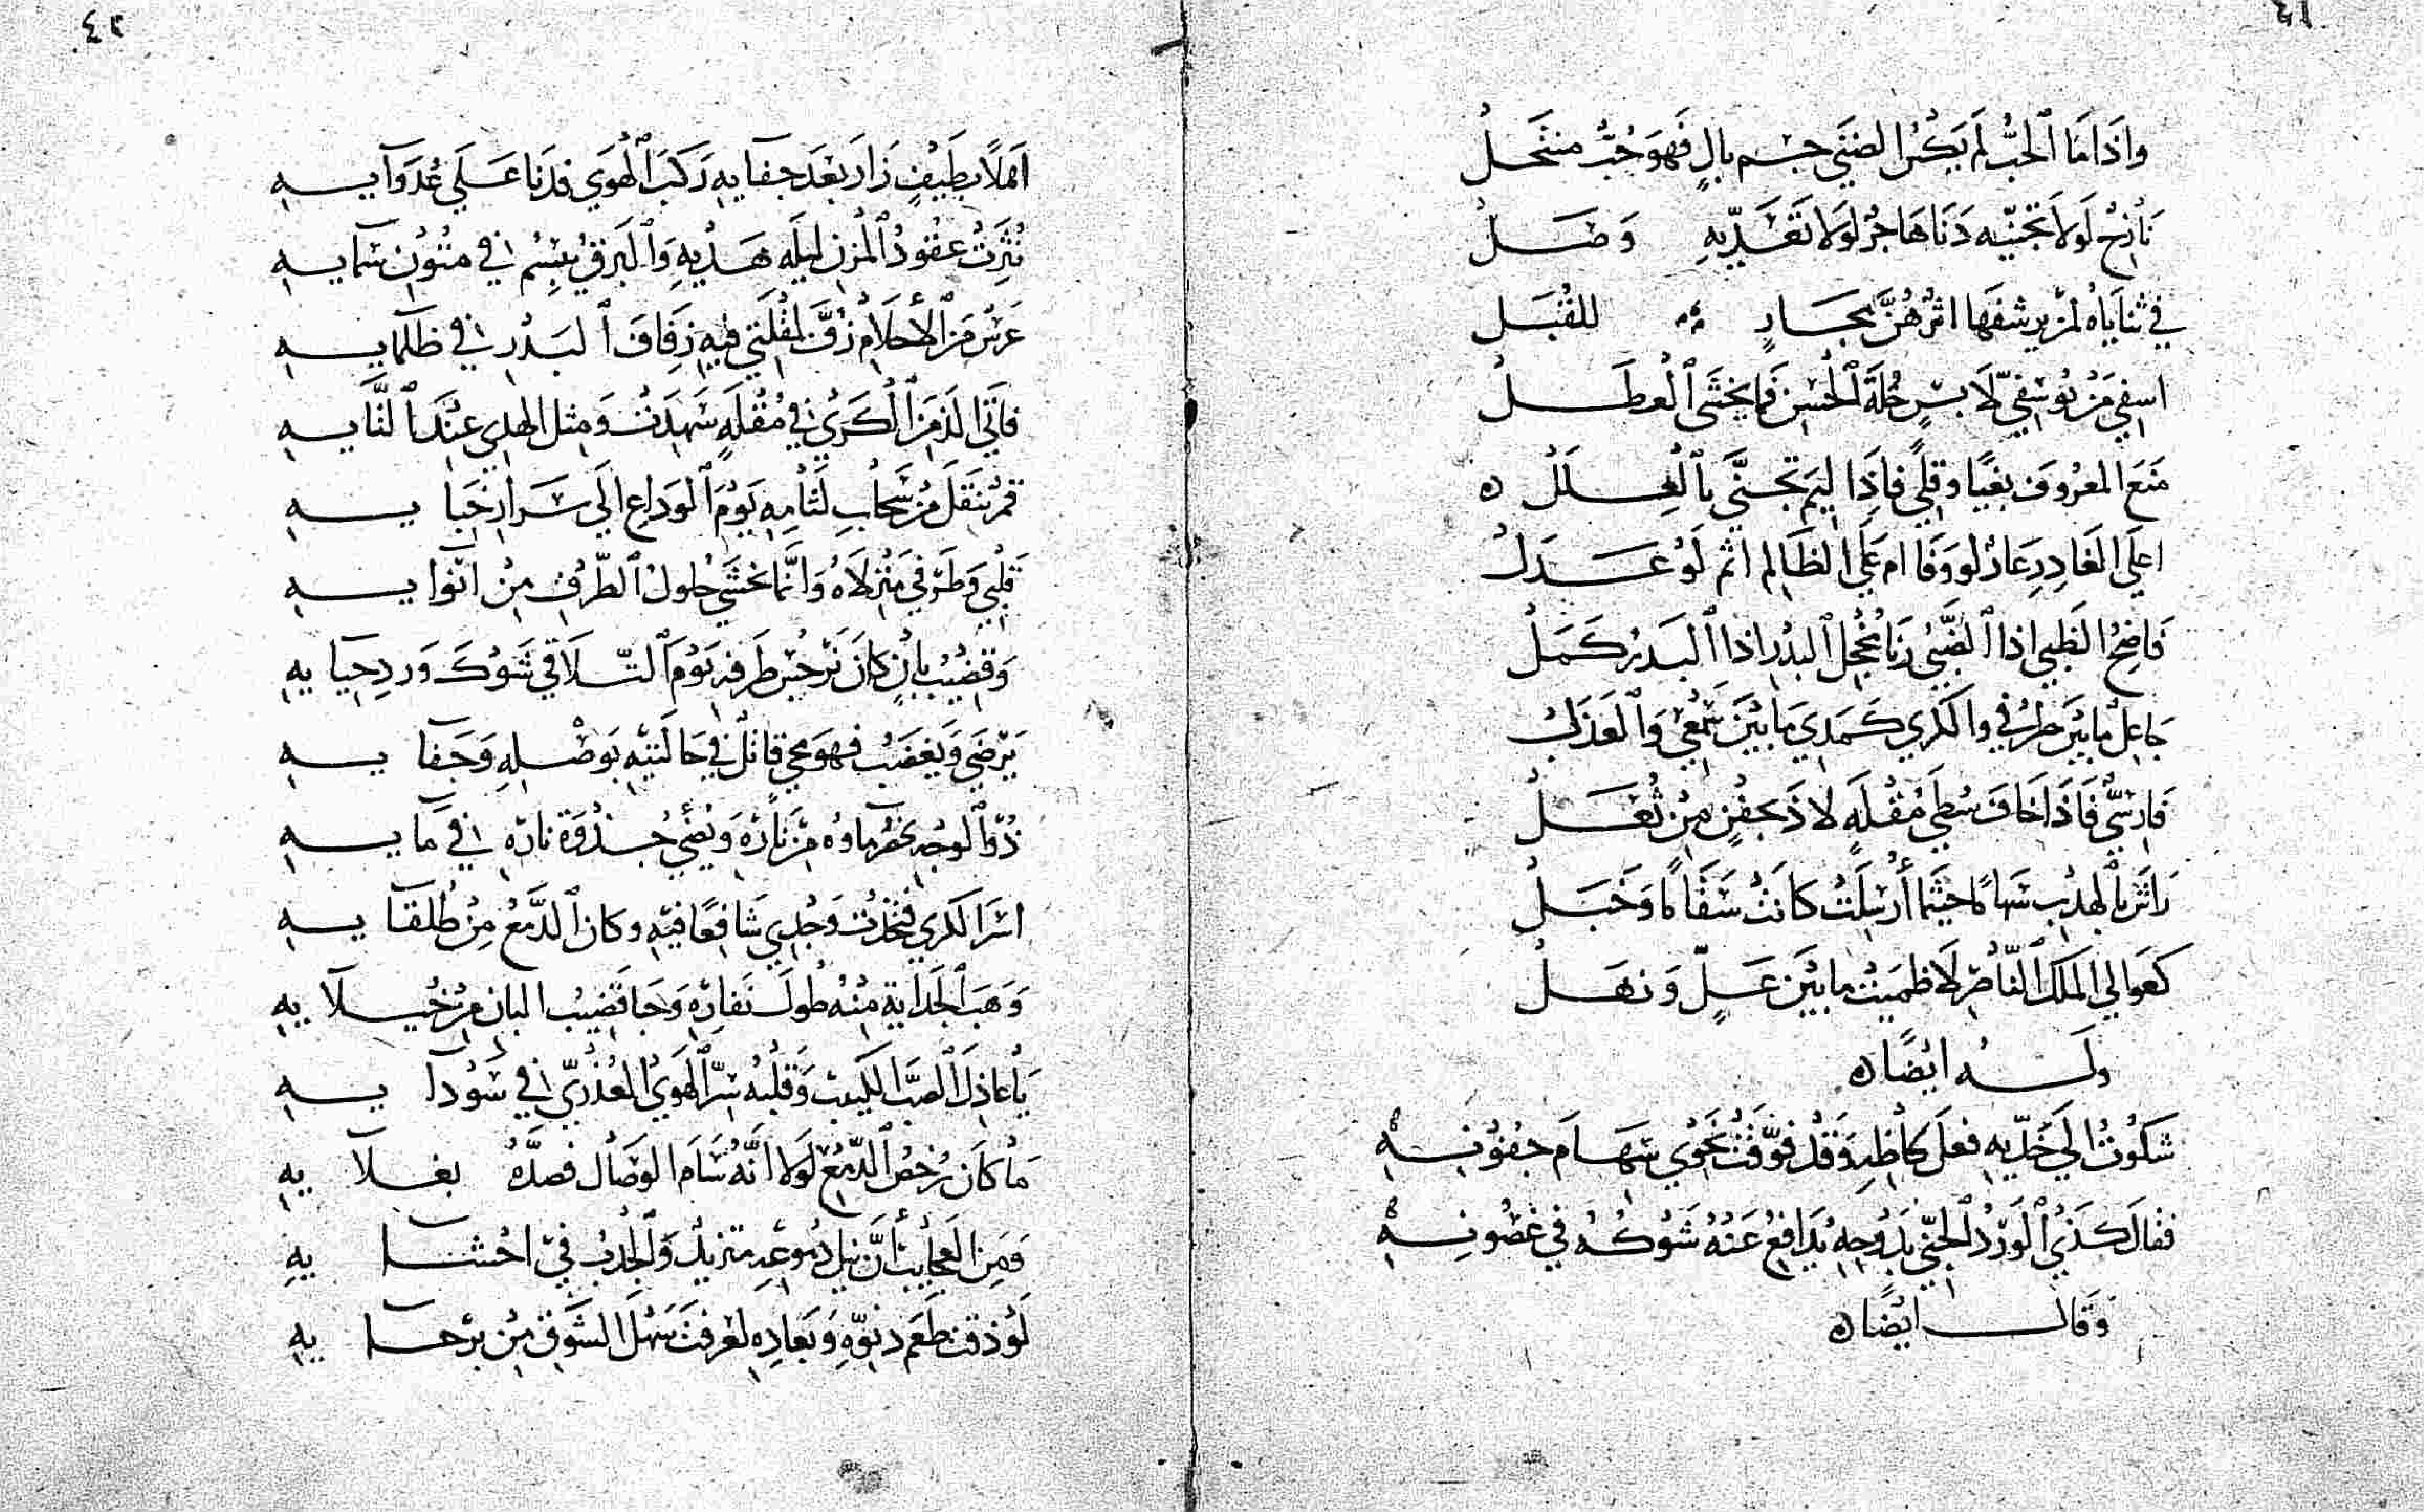 ٤١
واذا ما الحب لم يكس الضني جسم بال فهو حب منتحل
نازح لولا تجنيه دنا هاجر لولا تعديه وصل
في ثناياه لمن يرشفها اثر هن مجار للقبل
اسفي من يوسفي لابس حلة الحسن فما يخشى العطل
منع المعروف بغيا وقلي فاذا ليم تجني بالعلل ه
اعلى الغادر عار لو وفا ام على الظالم اثم لو عدل
فاضح الظبي اذا الظبي رنا مخجل البدر اذا البدر كمل
جاعل ما بين طرفي والكري كمدي ما بين سمعي والعذل
فارسي فاذا خاف سطي مقلة لاذ بجفن من ثعل
راش بالهدب سهاما حيثما أرسلت كانت سقاما وخبل
كعوالي الملك الناصر لا ظميت ما بين عل ونهل
وله ايضا ه
شكوت الى خديه فعل لحاظه وقد فوقت نحوي سهام جفونه
فقال كذي الورد الجني بدوحه يدافع عنه شوكه في غصونه
وقال ايضا ه
٤٢
اهلا بطيف زار بعد جفايه ركب الهوي فدنا على عدوآيه
نثرت عقود المزن ليله هديه والبرق يبسم في متون سمايه
عرس من الأحلام زف لمقلتي فيه زفاف البدر في ظلمايه
فاتى الذ من الكري في مقلة سهدت ومثل الهدي عند لقايه
قمر تنقل من سحاب لثامه يوم الوداع الى سرار خبايه
قلبي وطرفي منزلاه وانما نخشي حلول الطرف من انوايه
وقضيب بان كان نرجس طرفه يوم التلاقي شوك ورد حيايه
يرضى ويغضب فهو محي قاتل في حالتيه بوصله وجفايه
ذو الوجه يخفر ماوه من ناره ونضئ جذوة ناره في مايه
اسر الكري فتخذت وجدي شافعا فيه وكان الدمع من طلقايه
وهب الجداية منه طول نفاره وجا قضيب البان من خيلايه
يا عاذل الصب الكئيب وقلبه سر الهوي العذري في سودايه
ما كان رخص الدمع لولا انه سام الوصال فصده بغلايه
ومن العجايب أن نيل دموعه متزيد والجدب في احشايه
لو ذقت طعم دنوه وبعاده لعرفت سهل الشوق من برحايه